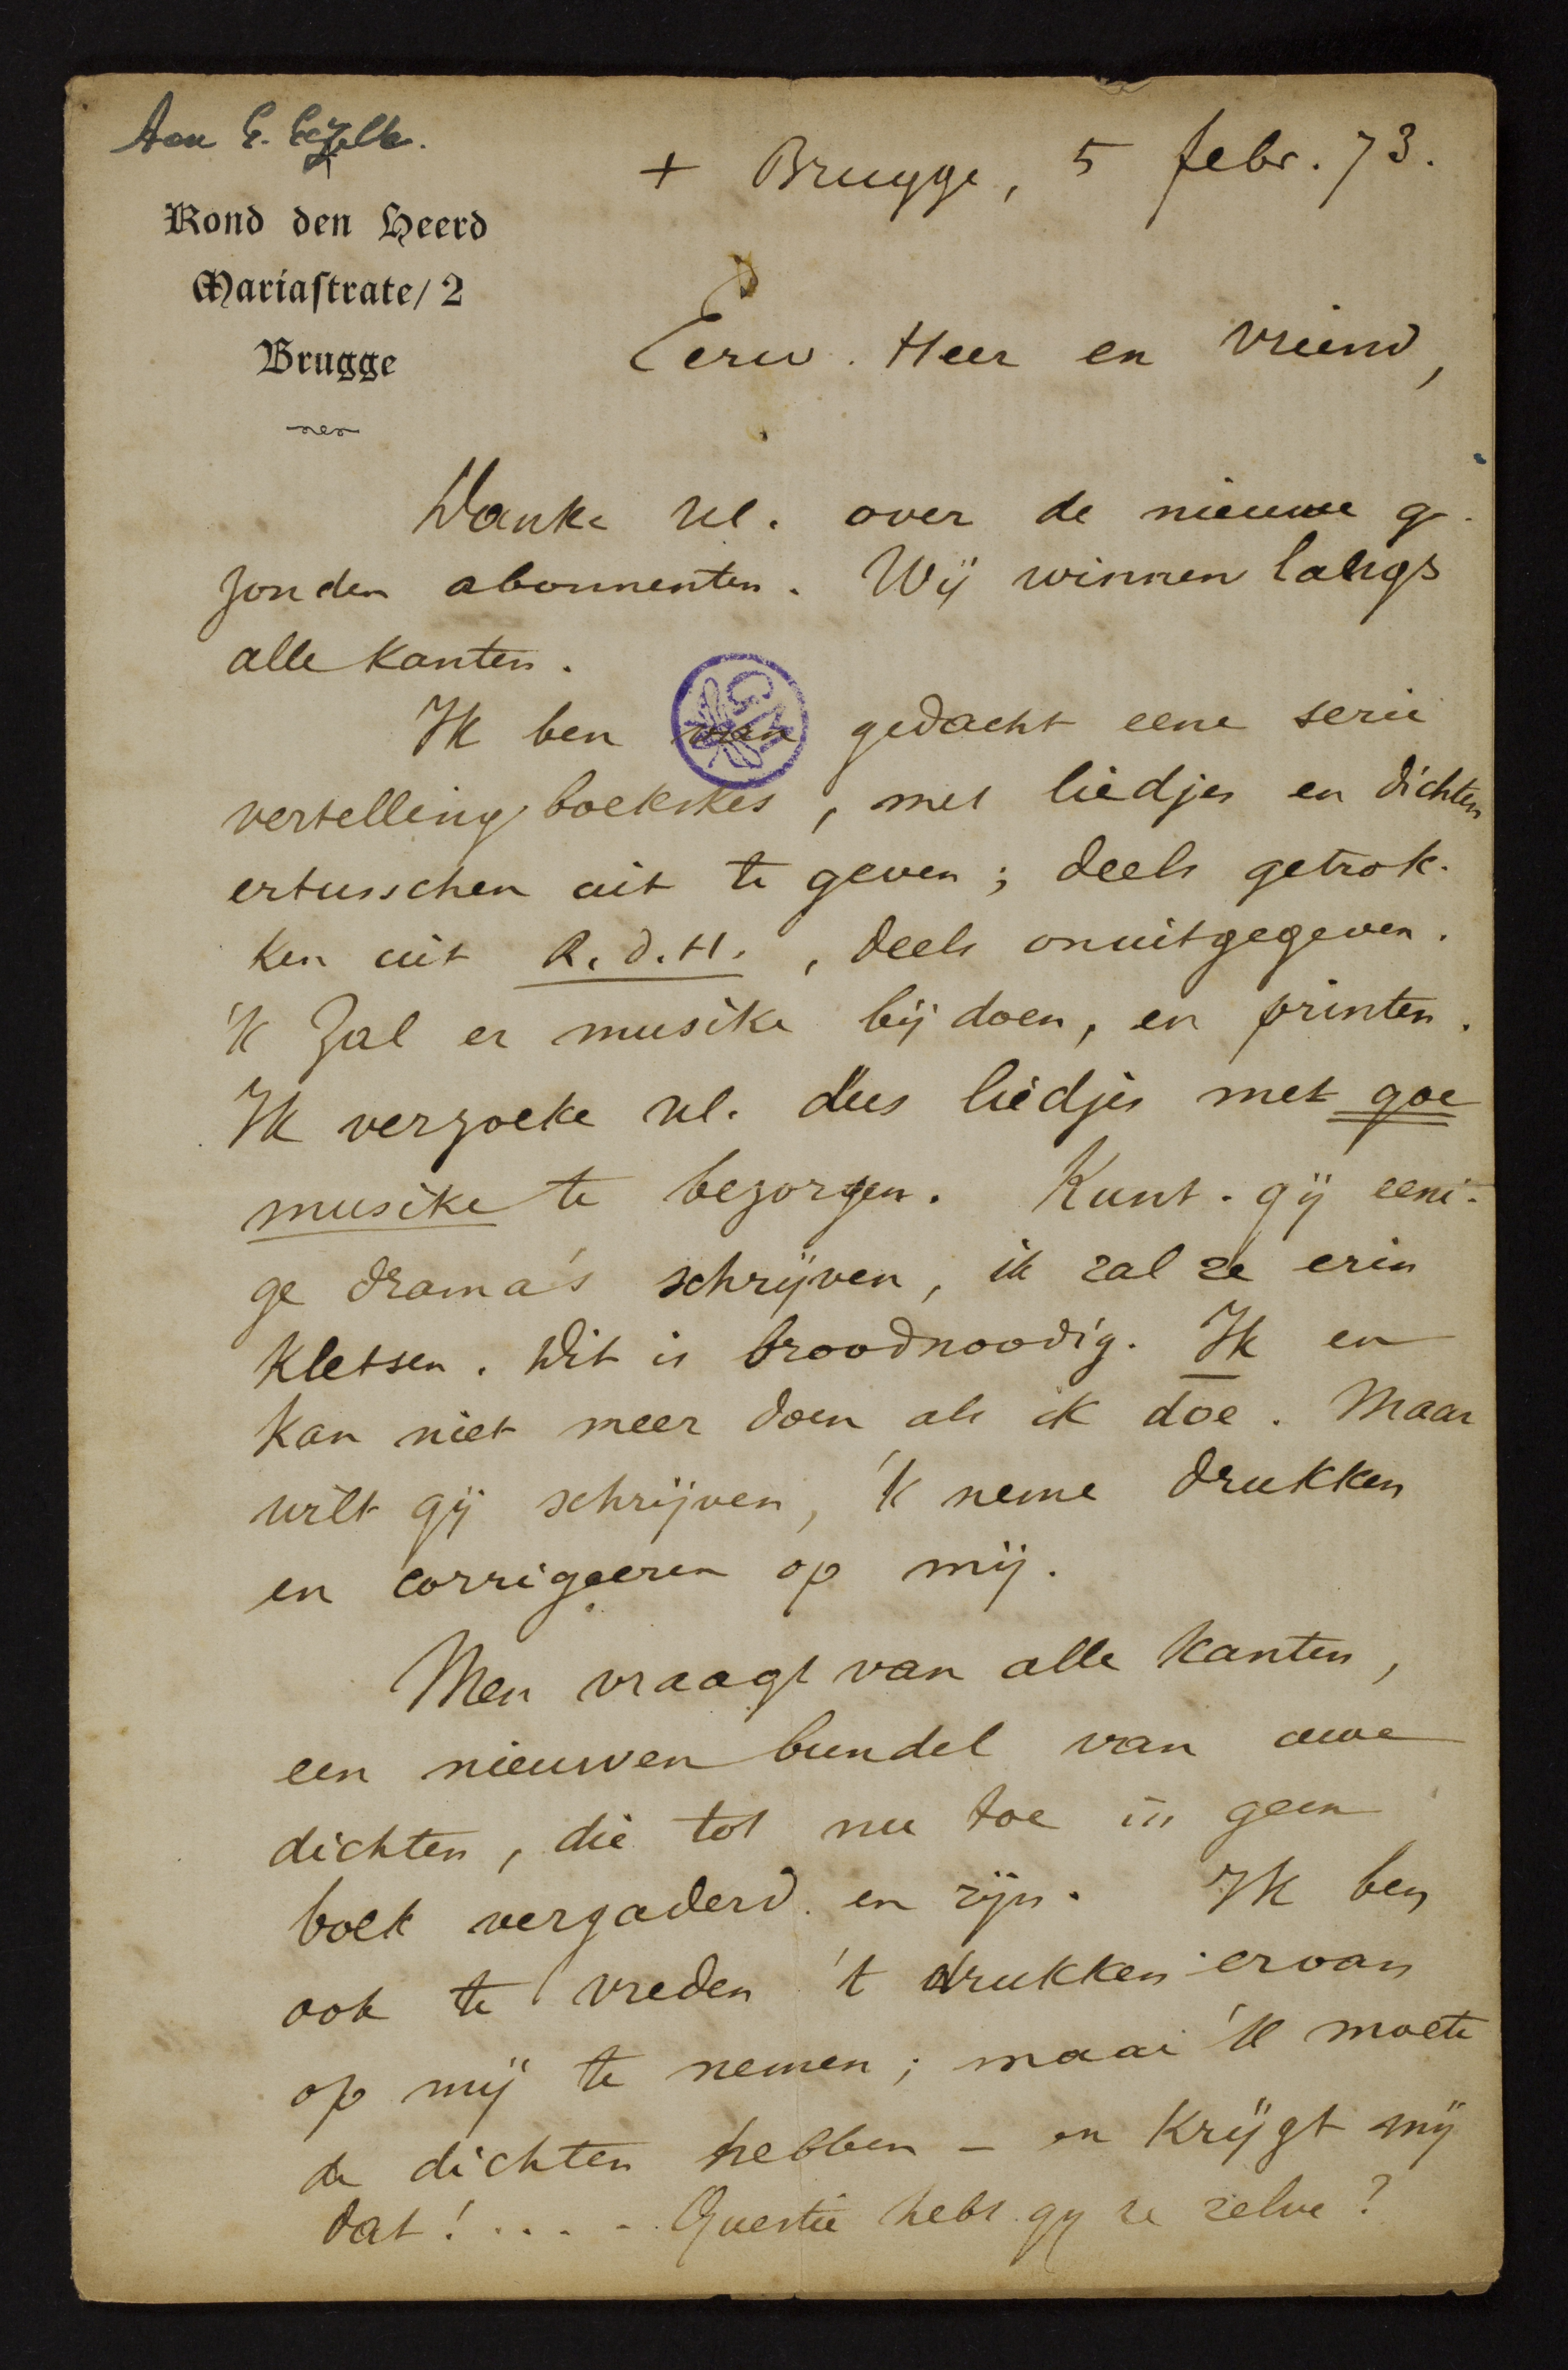 Aan G. Gezelle.
Rond den Heerd
Mariastrate/ 2
Brugge
+ Brugge, 5 febr. 73.
Eerw. Heer en vriend,
Danke Ul. over de nieuwe ge-
zonden abonnenten. Wij winnen langs
alle kanten.
Ik ben van gedacht eene serie
GM
vertellingboekskes, met liedjes en dichten
ertusschen uit te geven; deels getrok-
ken uit R.d.H., deels onuitgegeven.
'k Zal er musike bij doen, en printen.
Ik verzoeke Ul. dus liedjes met goe
musike te bezorgen. Kunt-gij eeni-
ge drama's schrijven, ik zal ze erin
kletsen. Dit is broodnoodig. Ik en
kan niet meer doen als ik doe. Maar
wilt gij schrijven, 'k neme drukken
en corrigeeren op mij.
Men vraagt van alle kanten,
een nieuwen bundel van uwe
dichten, die tot nu toe in geen
boek vergaderd en zijn. Ik ben
ook te vreden 't drukken ervan
op mij te nemen; maar 'k moete
de dichten hebben - en krijgt mij
dat! .... Questie hebt gij ze zelve?